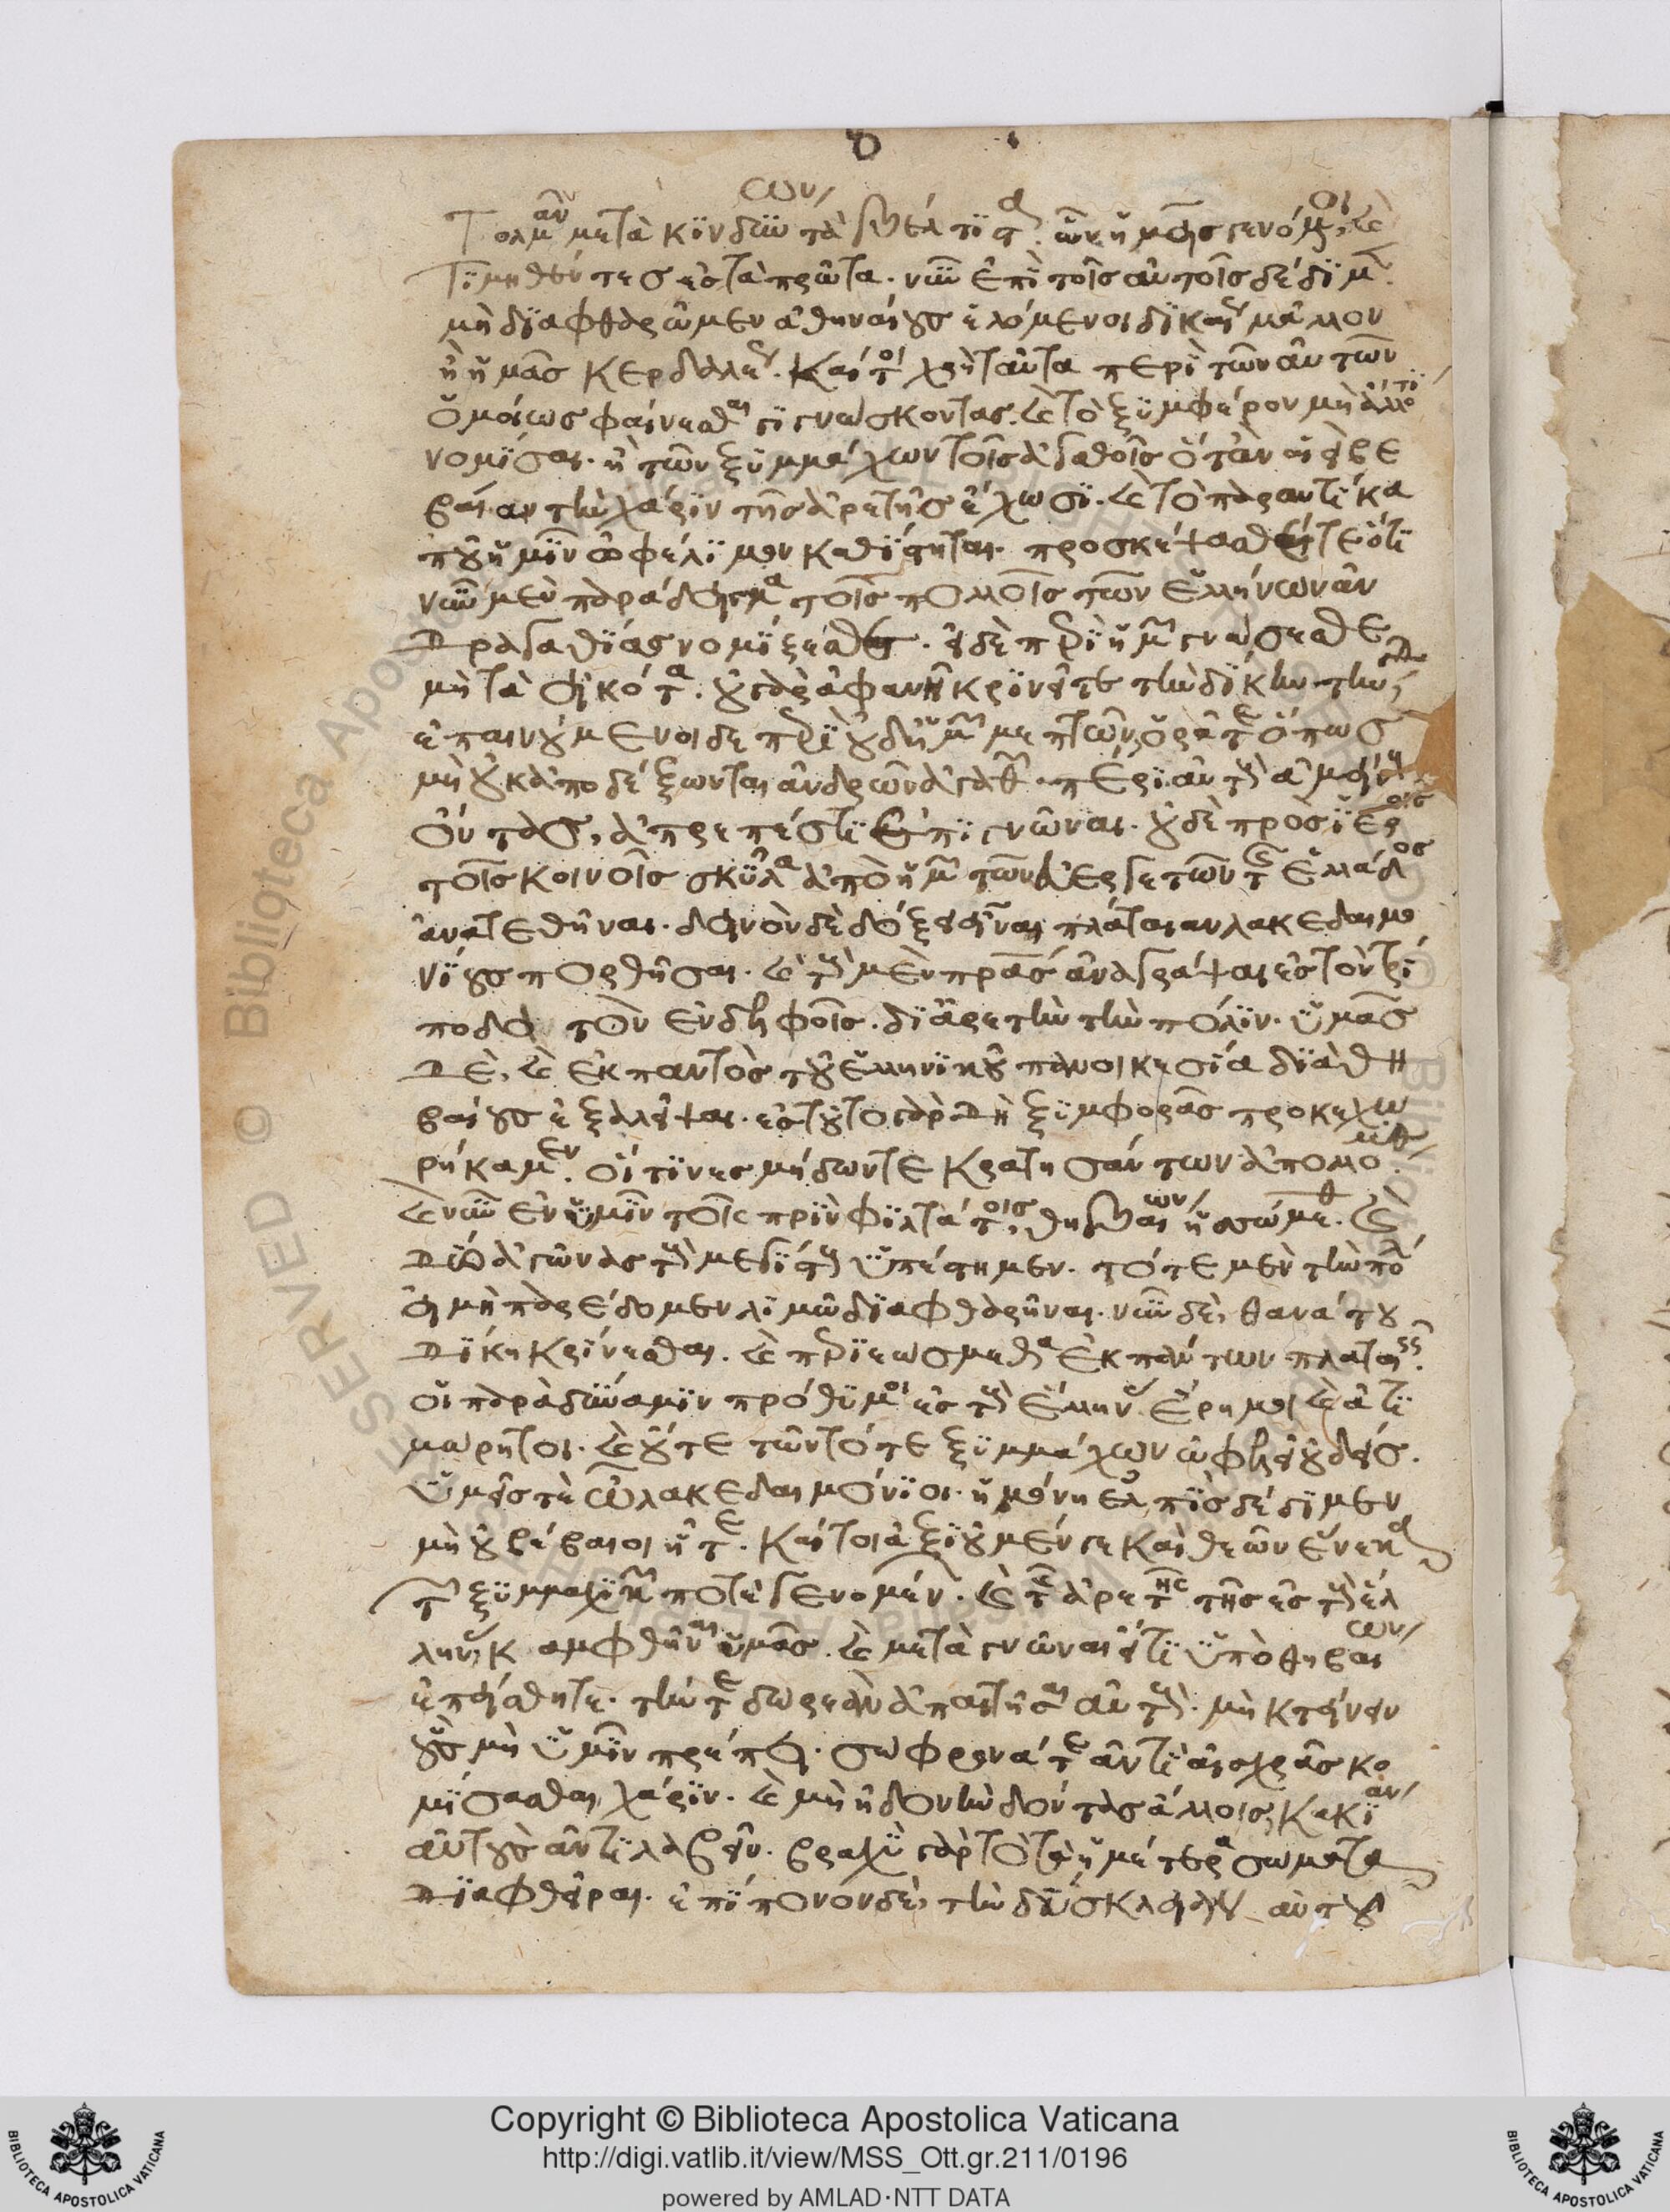 Τολμᾶν μετὰ κινδύνων τὰ βέλτιστα. ὧν ἡμεῖς γενόμενοι, καὶ
τιμηθέντες ἐς τὰ πρῶτα. νῦν ἐπὶ τοῖς αὐτοῖς δέδιμεν
μὴ διαφθαρῶμεν ἀθηναίους ἑλόμενοι δικαίως μᾶλλον
ἢ ὑμᾶς κερδαλέως. καί τοι χρὴ ταῦτα περὶ τῶν αὐτῶν
ὁμοίως φαίνεσθαι γιγνώσκοντας. καὶ τὸ ξυμφέρον μὴ ἄλλο τι
νομίσαι. ἢ τῶν ξυμμάχων τοῖς ἀγαθοῖς ὅταν αἰεὶ βε
βαιαν τὴν χάριν τῆς ἀρετῆς ἔχωσι. καὶ τὸ παραυτίκα
που ἡμῖν ὠφέλιμον καθιστῆται. προσκέψασθαί τε ὅτι
νῦν μὲν παράδειγμα τοῖς πολλοῖς τῶν ἑλλήνων ἀν
δραγαθίας νομίζεσθε. εἰ δὲ περὶ ἡμῶν γνώσεσθε
μὴ τὰ εἰκότα. οὐ γὰρ ἀφανῆ κρινεῖτε τὴν δίκην τήνδε,
ἐπαινούμενοι δε περὶ οὐδ' ἡμῶν μεμπτῶν, ὁρᾶτε ὅπως
μὴ οὐκ ἀποδέξωνται ἀνδρῶν ἀγαθῶν πέρι αὐτοὺς ἀμείνους
ὄντας, ἀπρεπές τι ἐπιγνῶναι. οὐδὲ πρὸς ἱεροῖς
τοῖς κοινοῖς σκῦλα ἀπὸ ἡμῶν τῶν εὐεργετῶν τῆς ἑλλάδος
ἀνατεθῆναι. δεινὸν δὲ δόξει εἶναι πλάταιαν λακεδαιμο
νίους πορθῆσαι. καὶ τοὺς μὲν πατέρας ἀναγράψαι ἐς τὸν τρί
ποδα τὸν ἐν δελφοῖς. δι' ἀρετὴν τὴν πόλιν. ὑμᾶς
δὲ, καὶ ἐκ παντὸς τοῦ ἑλληνικοῦ πανοικησία διὰ θη
βαίους ἐξαλεῖψαι. ἐς τοῦτο γὰρ δὴ ξυμφορᾶς προκεχω
ρήκαμεν. οἵτινες μήδων τε κρατησάντων ἀπολλύμεθα
καὶ νῦν ἐν ὑμῖν τοῖς πρὶν φιλτάτοις, θηβαίων ἡσσώμεθα. καὶ
δύο ἀγῶνας τοὺς μεγίστους ὑπέστημεν. τότε μὲν τὴν πόλ
ει μὴ παρέδομεν λιμῶ διαφθαρῆναι. νῦν δὲ, θανάτου
δίκη κρίνεσθαι. καὶ περιεώσμεθα ἐκ πάντων πλαταιῆς.
οἱ παρὰ δύναμιν πρόθυμοι ἐς τοὺς ἕλληνας ἔρημοι καὶ ἀτι
μώρητοι. καὶ οὔτε τῶν τότε ξυμμάχων ὠφελεῖ οὐδείς.
ὑμεῖς τὲ ὦ λακεδαιμόνιοι. ἡ μόνη ἐλπὶς δέδιμεν
μὴ οὐ βέβαιοι ἦτε. καίτοι ἀξιοῦμέν γε καὶ θεῶν ἕνεκα
τῶν ξυμμαχικῶν ποτὲ γενομένων. καὶ τῆς ἀρετῆς τῆς ἐς τοὺς ἕλ
ληνας καμφθῆναι ὑμᾶς. καὶ μεταγνῶναι εἴ τι ὑπὸ θηβαίων
ἐπείσθητε. τήν τε δωρεὰν ἀπαιτῆσαι αὐτοὺς. μὴ κτείνειν
οὓς μὴ ὑμῖν πρέπει. σώφρονά τε ἀντὶ αἰσχρᾶς κο
μίσασθαι χάριν. καὶ μὴ ἡδονὴν δόντας ἄλλοις, κακίαν
αὐτοὺς ἀντιλαβεῖν. βραχὺ γὰρ τὸ τὰ ἡμέτερα σώματα
διαφθεῖραι. ἐπίπονον δὲ, τὴν δύσκλειαν αὐτοῦ
Copyright © Biblioteca Apostolica Vaticana
http://digi.vatlib.it/view/MSS_Ott.gr.211/0196
powered by AMLAD·NTT DATA